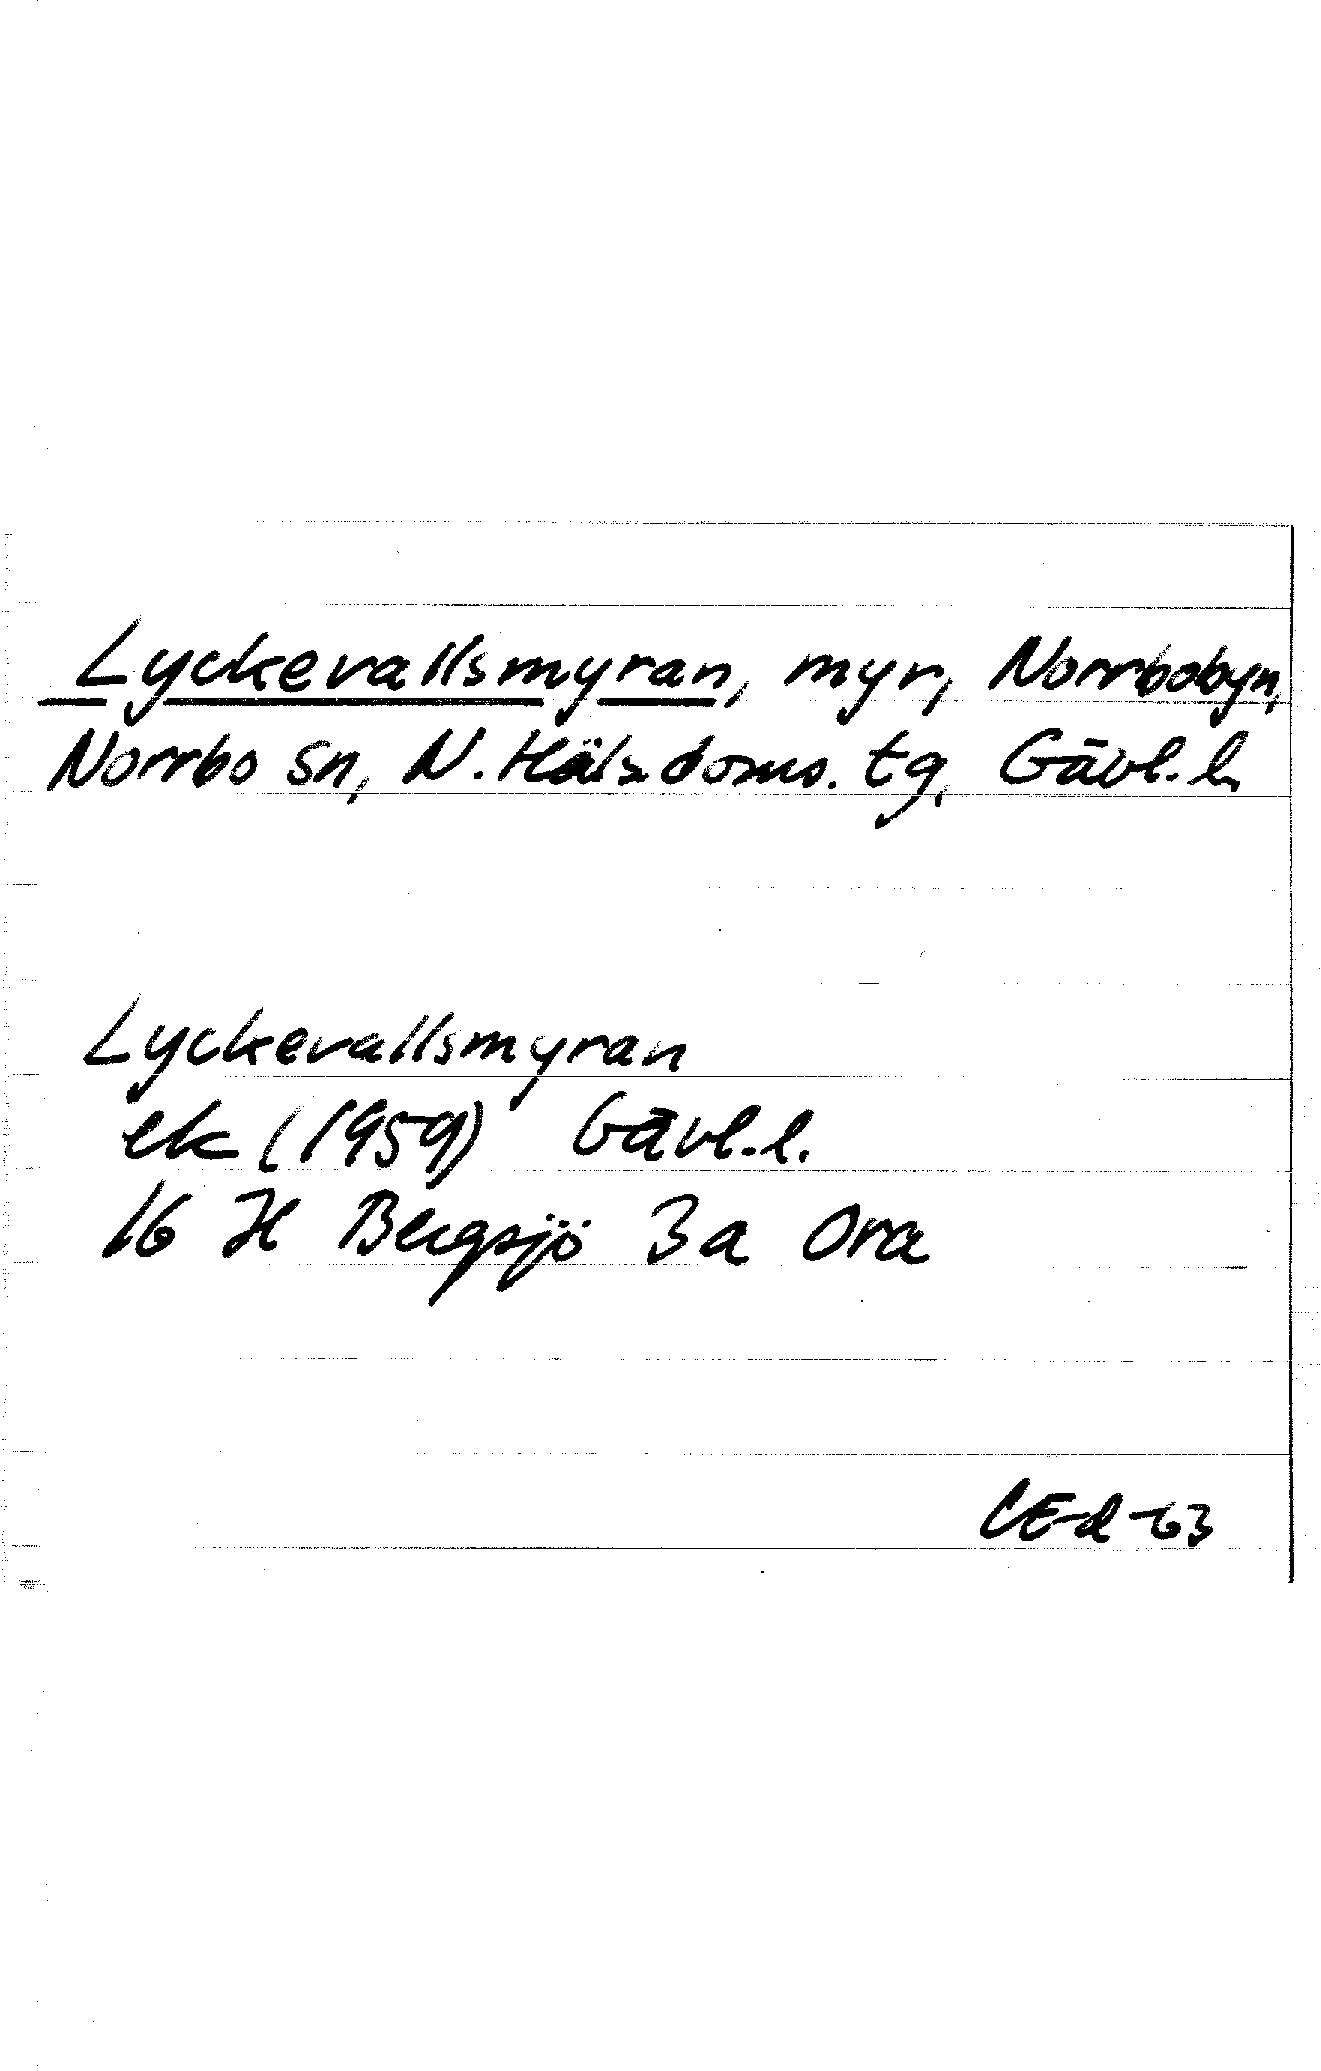 Lyckevallsmyran, myr, Norrbobyn,
Norrbo sn, N. Häls doms. tg, Gävl. l.
Lyckevallsmyran
ek (1959) Gävl. l.
16 H Bergsjö 3a Ora
CEd -63